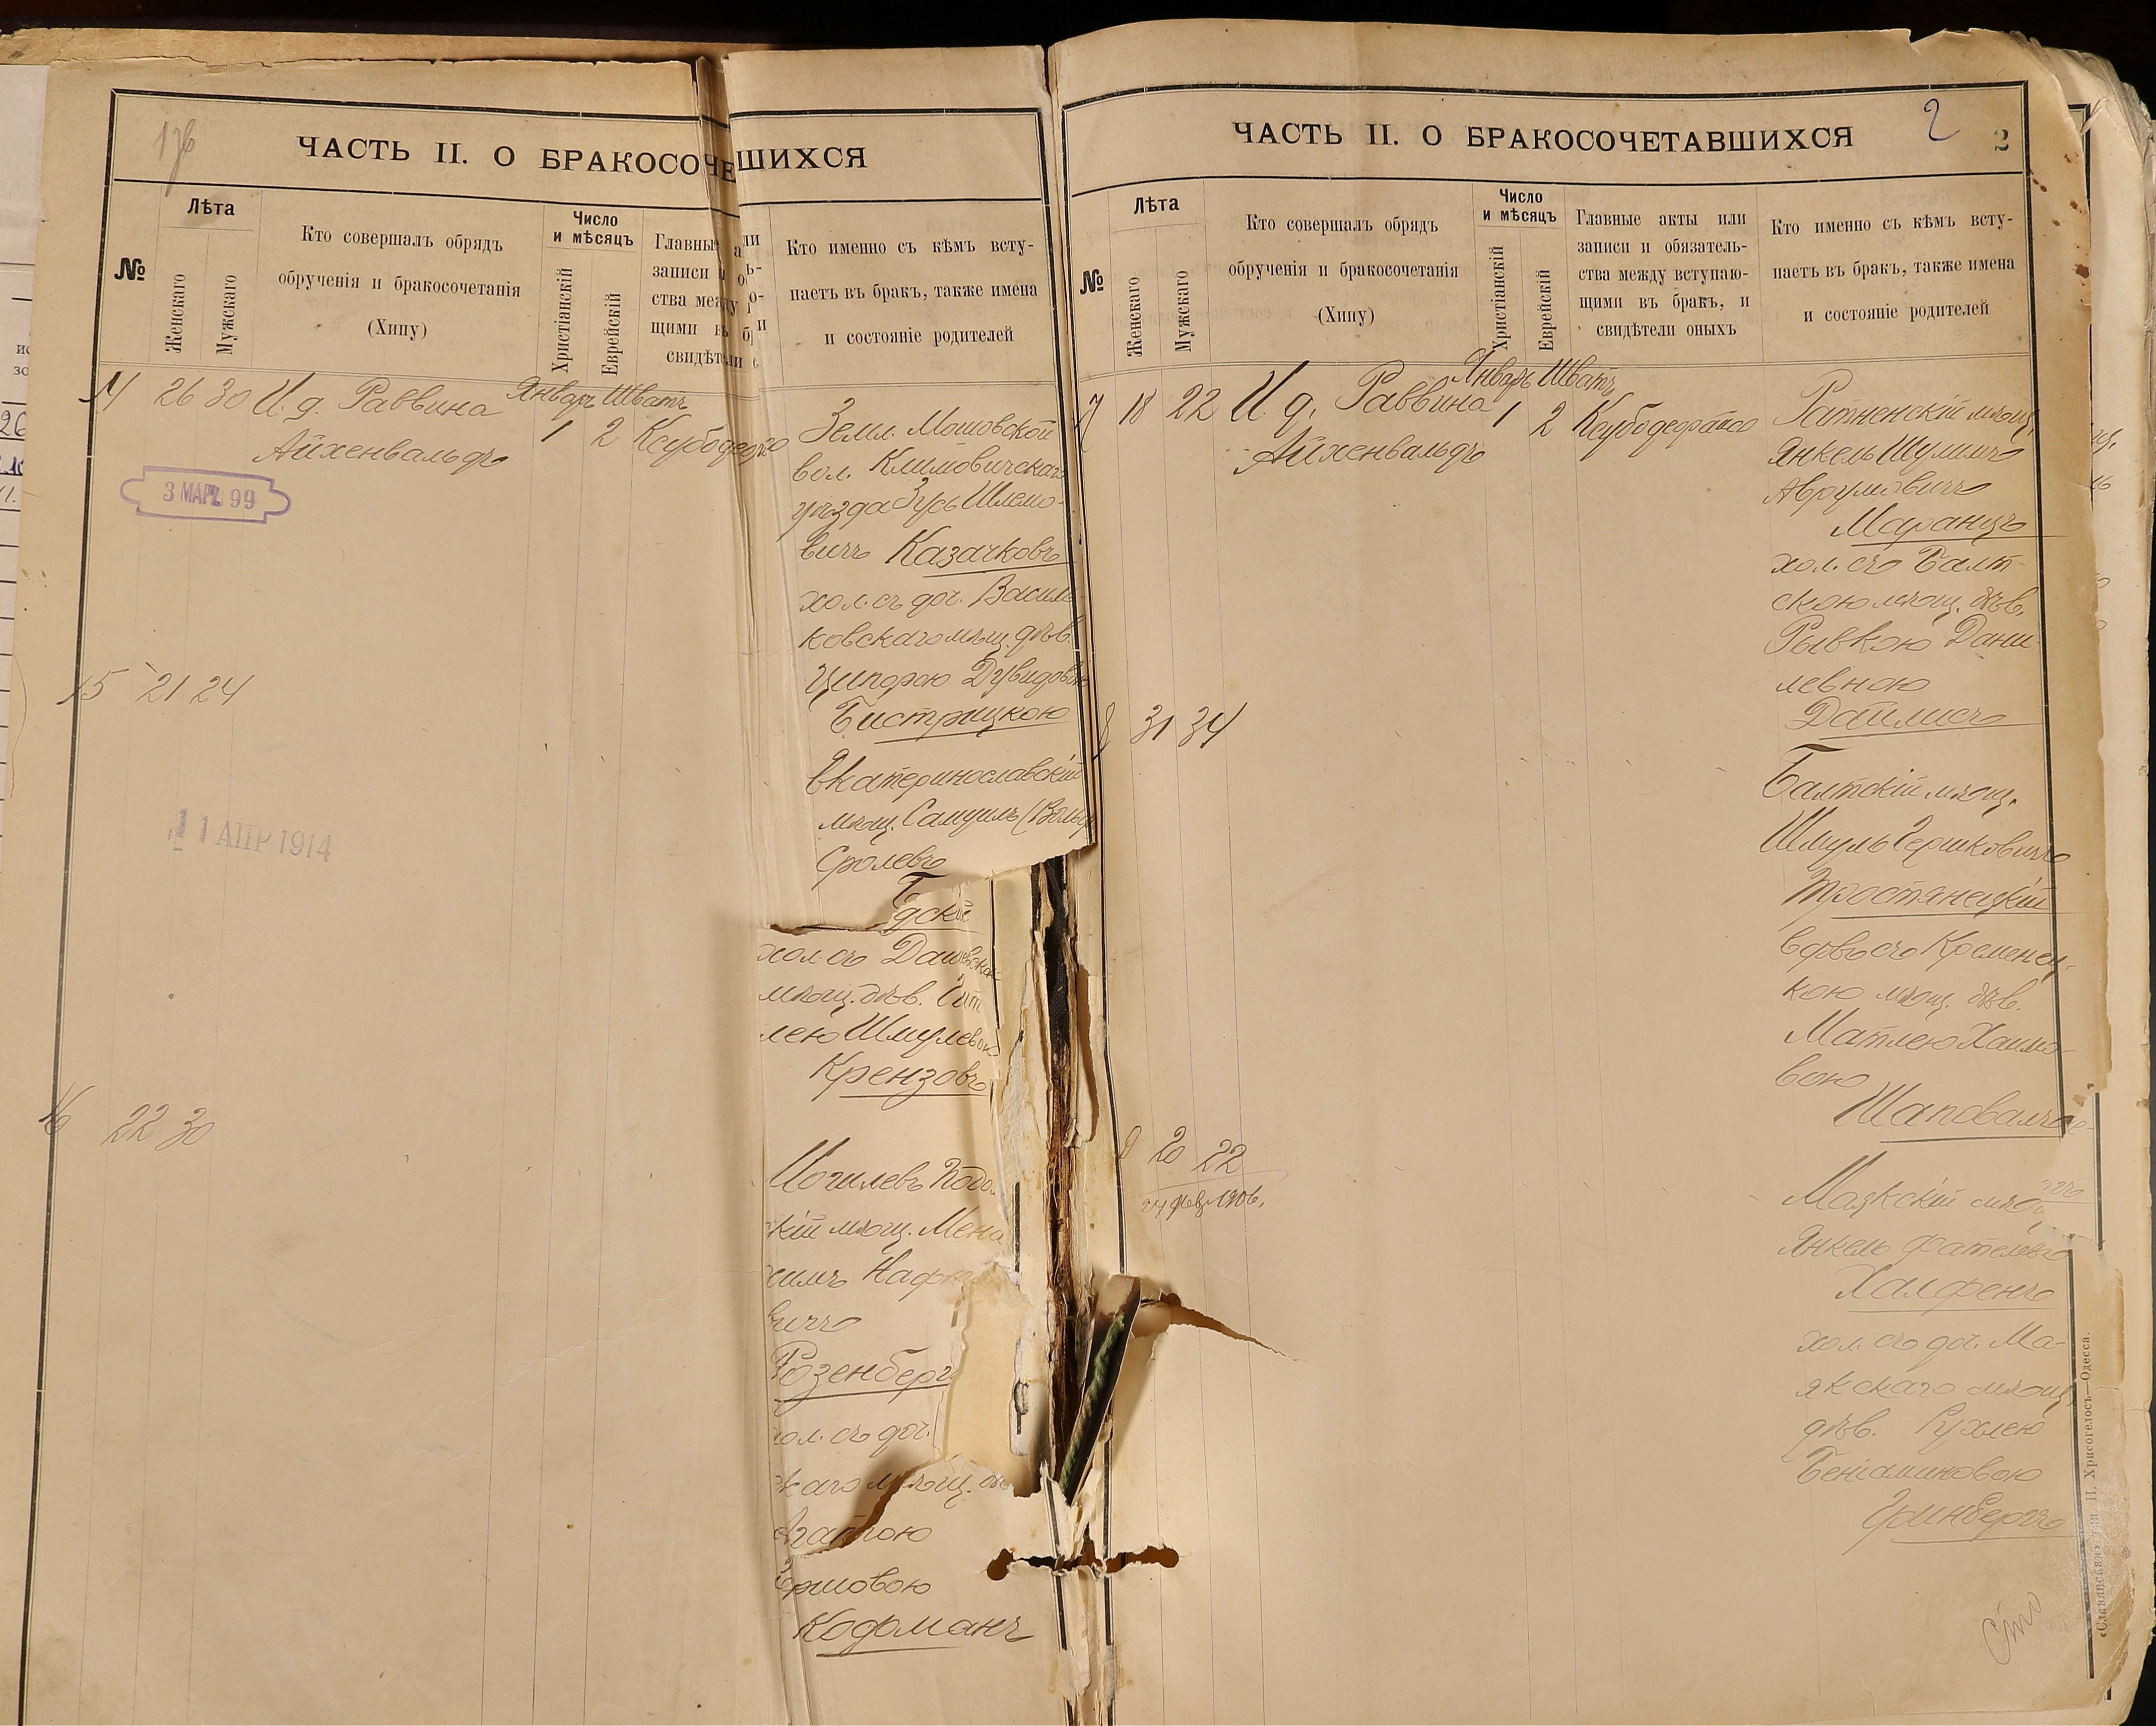 ЧАСТЬ II. О БРАКОСОЧЕ
ШИХСЯ
№
Лѣта
Женскаго
Мужскаго
Кто совершалъ обрядъ
обрученія и бракосочетанія
(Хипу)
Число
и мѣсяцъ
Христіанскій
Еврейскій
Главны
записи
ства между
щими въ
свидѣтели
Кто именно съ кѣмъ всту-
паетъ въ бракъ, также имена
и состояніе родителей
14 26 30 И. д. Раввина Январь Шватъ
Айхенвальдъ 1 2 Ксубодеорайсо
3 МАР. 99
Земл. Мошовской
вол. Климовичскаго
уѣзда Зусь Шлемо-
вичъ Казачковъ
хол. съ доч. Василь
ковскаго мѣщ. дѣв.
Ципорою Дувидовою
Бистрицкою
15 21 24
Екатеринославскій
мѣщ. Самуилъ (Вольф
Сролевъ
дскій
хол. съ Дашевскою
мѣщ. дѣв.
лею Шмулевою
Крензовъ
1 АПР 1914
16 22 30
Могилевъ Подол
кій мѣщ. Мена
химъ Нафт
вичъ
Розенберг
хол. съ доч.
каго мѣщ.
ршовою
Кофманъ
2
2
ЧАСТЬ II. О БРАКОСОЧЕТАВШИХСЯ
№
Лѣта
Женскаго
Мужскаго
Кто совершалъ обрядъ
обрученія и бракосочетанія
(Хипу)
Число
и мѣсяцъ
Христіанскій
Еврейскій
Главные акты или
записи и обязатель-
ства между вступаю-
щими въ бракъ, и
свидѣтели оныхъ
Кто именно съ кѣмъ всту-
паетъ въ бракъ, также имена
и состояніе родителей
7 18 22 И. д. Раввина Январь Шватъ
Айхенвальдъ 1 2 Ксубодеорайсо
Ратненскій мѣщ.
Янкель Шулимъ
Аврумовичъ
Маранцъ
хол. съ Балт-
скою мѣщ. дѣв.
Рывкою Дани-
левною
Дайлисъ
8 31 34
Балтскій мѣщ.
Шмуль Гершковичъ
Тростянецкій
вдовъ съ Кременец-
кою мѣщ. дѣв.
Матлею Хаимо-
вою
Шаповалъ
9 20 22
Маякскій мѣщ
Янкель Фателевъ
Халфенъ
хол. съ доч. Ма-
якскаго мѣщ.
дѣв. Рухлею
Беніаминовою
Гринбергъ
Сто
«Славянская» тип. Н. Хрисогелосъ—Одесса.